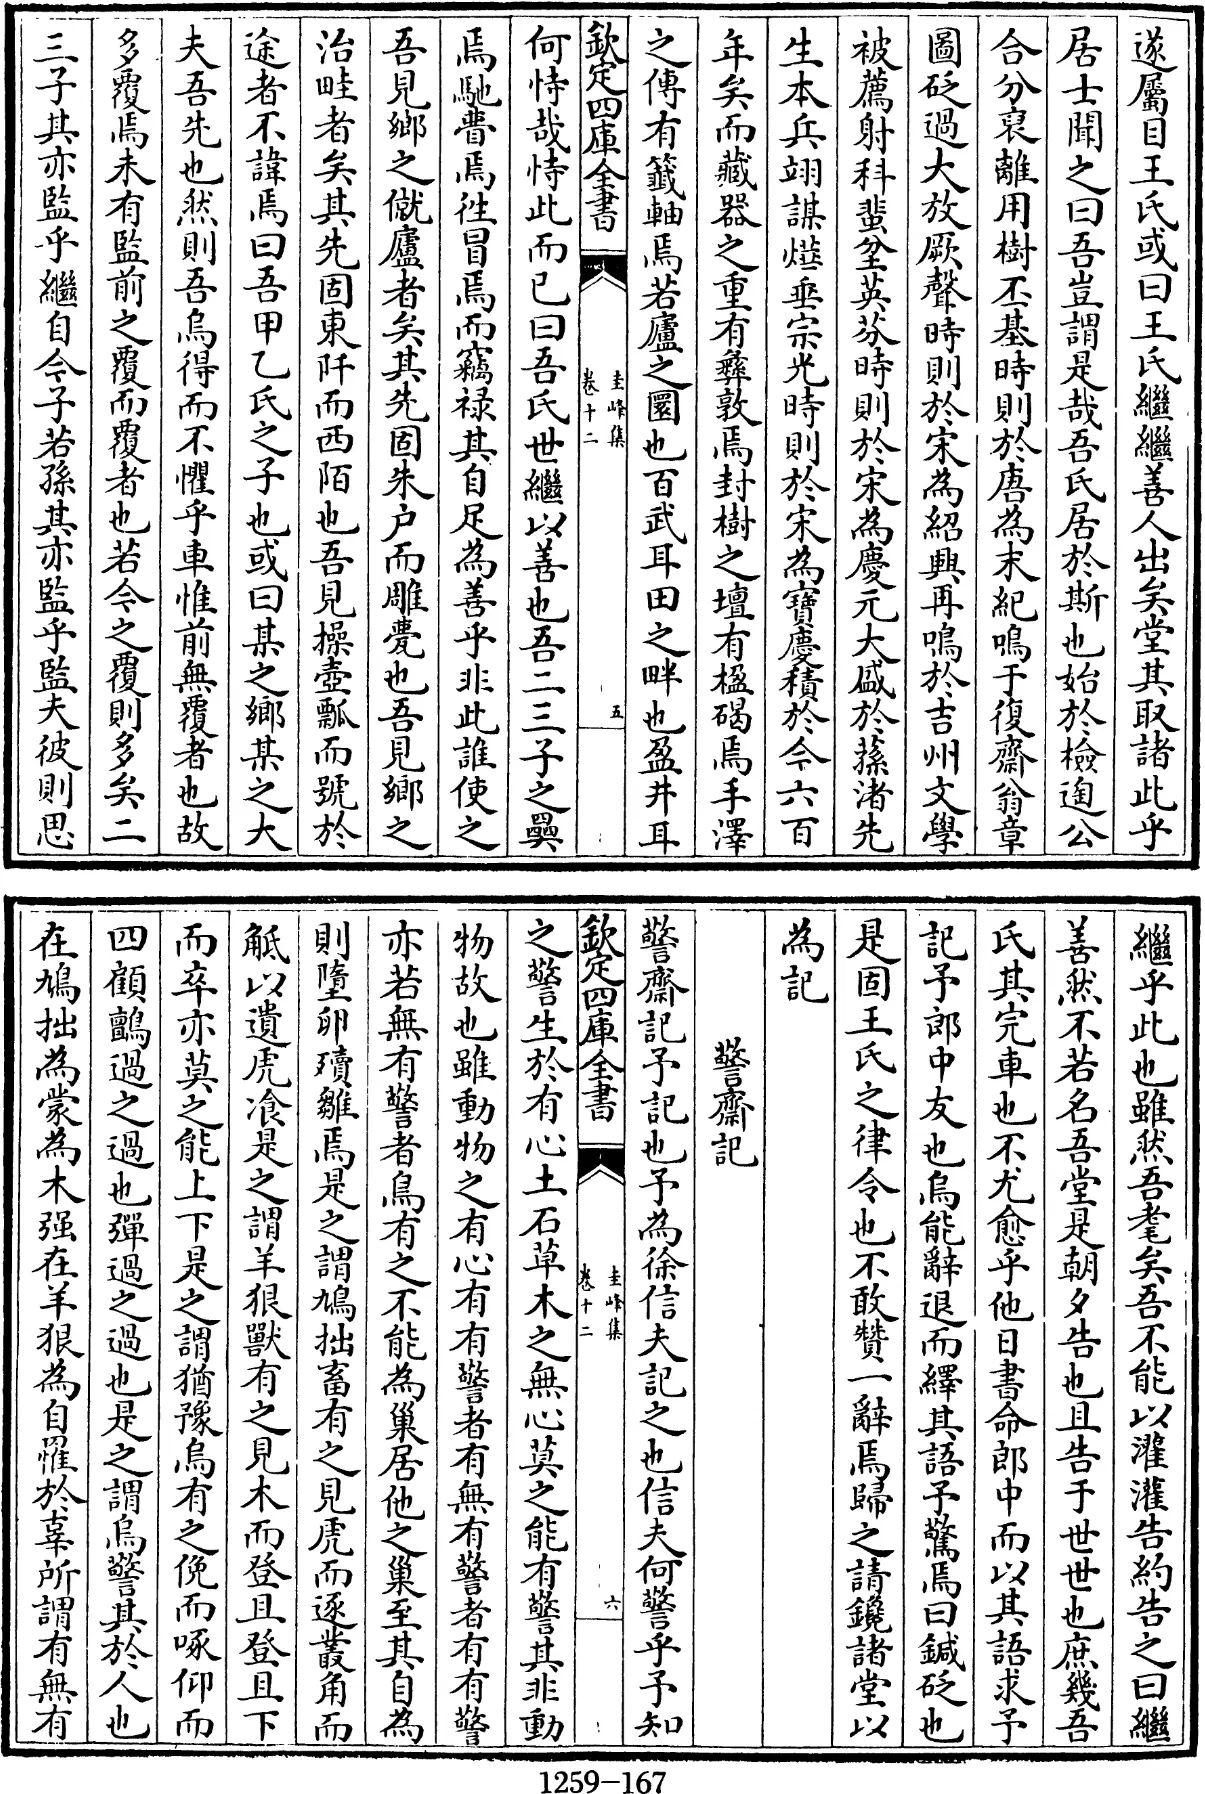 遂屬目王氏或曰王氏繼繼善人出矣堂其取諸此乎
居士聞之曰吾豈謂是哉吾氏居於斯也始於檢逈公
合分裒離用樹丕基時則於唐為末紀鳴于復齋翁章
圖砭過大放厥聲時則於宋為紹興再鳴於吉州文學
被薦射科蜚坌英芬時則於宋為慶元大盛於蓀渚先
生本兵翊謀燁垂宗光時則於宋為寶慶積於今六百
年矣而藏器之重有彝敦焉封樹之壇有楹碣焉手澤
之傳有籤軸焉若廬之圜也百武耳田之畔也盈井耳
欽定四庫全書
圭峰集
卷十二
五
何恃哉恃此而已曰吾氏世繼以善也吾二三子之㒍
焉馳瞢焉徃冒焉而竊禄其自足為善乎非此誰使之
吾見鄉之僦廬者矣其先固朱户而雕甍也吾見鄉之
治畦者矣其先固東阡而西陌也吾見操壺瓢而號於
途者不諱焉曰吾甲乙氏之子也或曰某之鄉某之大
夫吾先也然則吾烏得而不懼乎車惟前無覆者也故
多覆焉未有監前之覆而覆者也若今之覆則多矣二
三子其亦監乎繼自今子若孫其亦監乎監夫彼則思
繼乎此也雖然吾耄矣吾不能以灌灌告約告之曰繼
善然不若名吾堂是朝夕告也且告于世世也庶幾吾
氏其完車也不尤愈乎他日書命郎中而以其語求予
記予郎中友也烏能辭退而繹其語予驚焉曰鍼砭也
是固王氏之律令也不敢贊一辭焉歸之請鑱諸堂以
為記
警齋記
警齋記予記也予為徐信夫記之也信夫何警乎予知
欽定四庫全書
圭峰集
卷十二
六
之警生於有心土石草木之無心莫之能有警其非動
物故也雖動物之有心有有警者有無有警者有有警
亦若無有警者鳥有之不能為巢居他之巢至其自為
則墮卵㱩雛焉是之謂鳩拙畜有之見虎而逐叢角而
觝以遺虎飡是之謂羊狠獸有之見木而登且登且下
而卒亦莫之能上下是之謂猶豫烏有之俛而啄仰而
四顧鸇過之過也彈過之過也是之謂烏警其於人也
在鳩拙為蒙為木强在羊狠為自罹於辜所謂有無有
1259-167